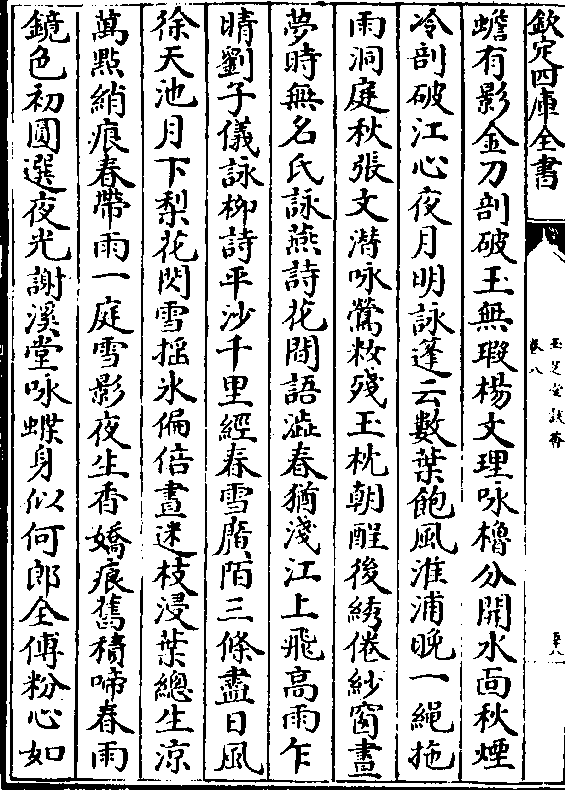 欽定四庫全書
玉芝堂談薈
卷八
蟾有影金刀剖破玉無瑕楊文理咏櫓分開水面秋煙
冷剖破江心夜月明詠篷云數葉飽風淮浦晚一繩拖
雨洞庭秋張文潛咏鶯粧殘玉枕朝酲後綉倦紗窗晝
夢時無名氏詠燕詩花間語澁春猶淺江上飛高雨乍
晴劉子儀詠栁詩平沙千里經春雪廣陌三條盡日風
徐天池月下梨花閃雪摇氷偏倍晝迷枝浸葉總生凉
萬點綃痕春帶雨一庭雪影夜生香嬌痕舊積啼春雨
鏡色初圓選夜光謝溪堂咏蝶身似何郎全傅粉心如